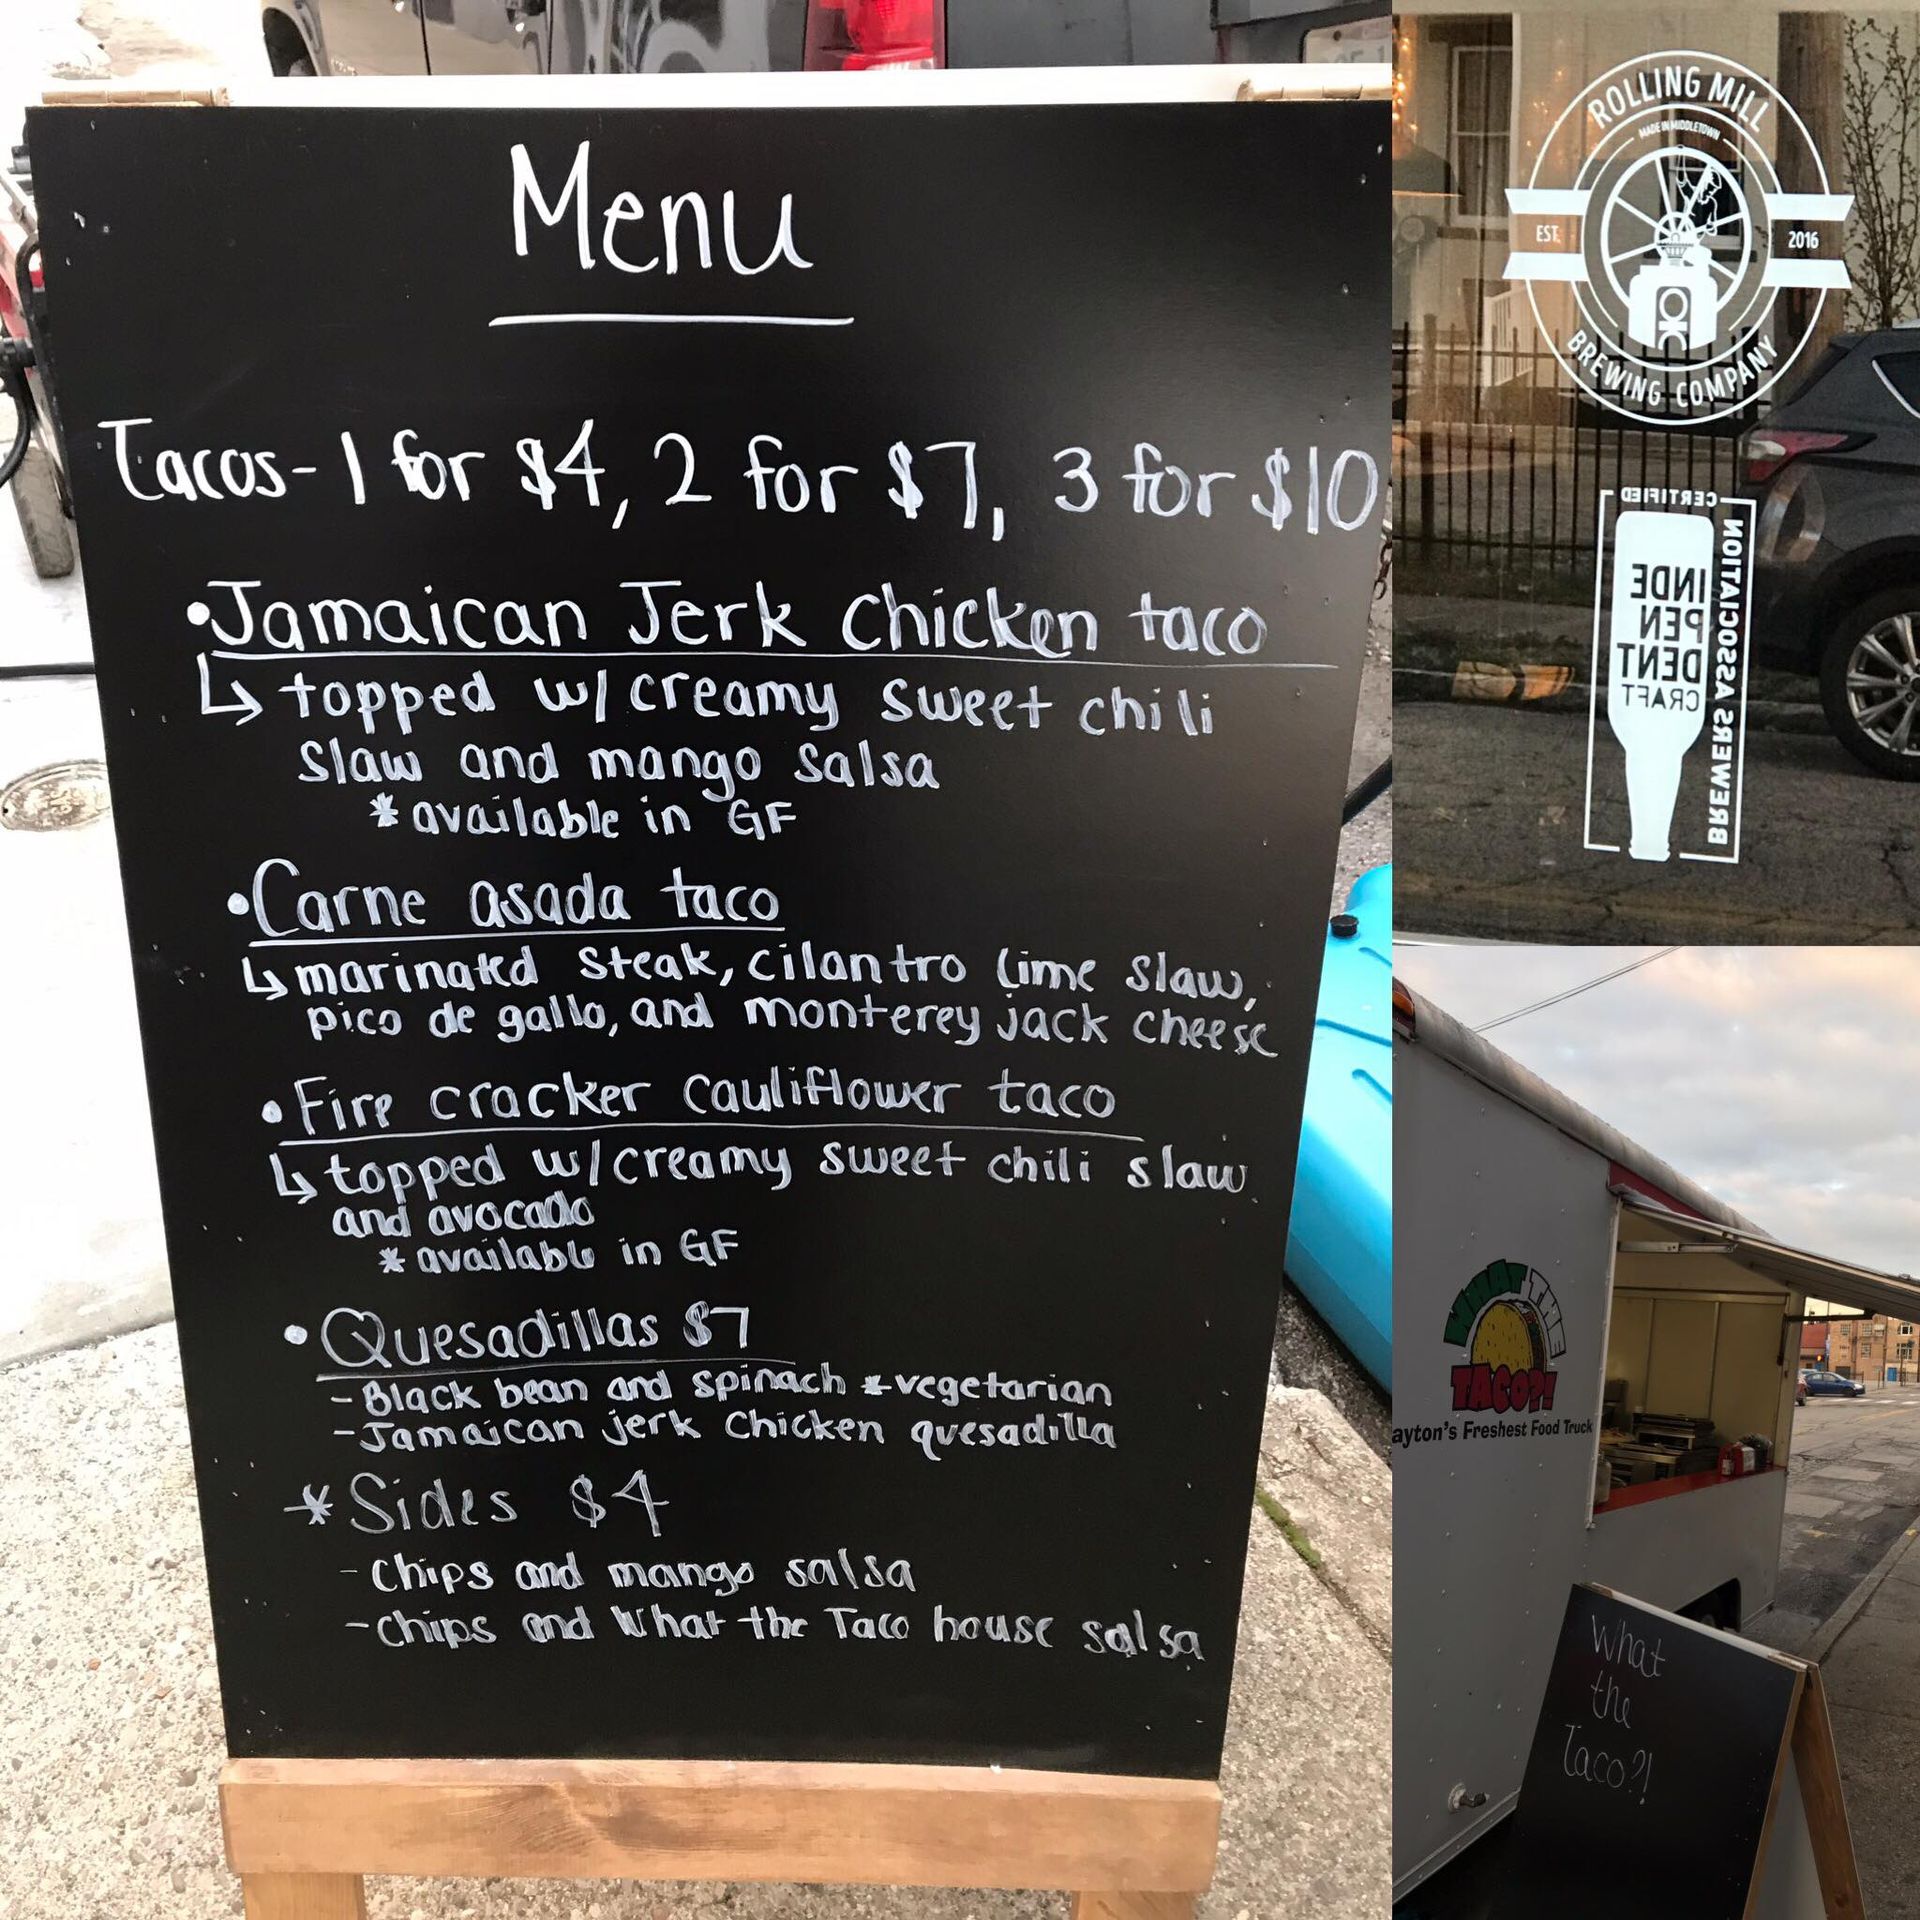 Menu
Tacos - 1 for $4, 2 for $7, 3 for $10
• Jamaican Jerk Chicken taco
↳ topped w/ creamy sweet chili
slaw and mango salsa
* available in GF
• Carne asada taco
↳ marinated steak, cilantro lime slaw,
pico de gallo, and monterey jack cheese
• Fire cracker cauliflower taco
↳ topped w/ creamy sweet chili slaw
and avocado
* available in GF
• Quesadillas $7
- Black bean and spinach * vegetarian
- Jamaican jerk Chicken quesadilla
* Sides $4
- Chips and mango salsa
- Chips and What the Taco house salsa
ROLLING MILL
MADE IN MIDDLETOWN
EST. 2016
BREWING COMPANY
CERTIFIED
INDE
PEN
DENT
CRAFT
BREWERS ASSOCIATION
WHAT THE
TACO?!
ayton's Freshest Food Truck
What
the
Taco?!